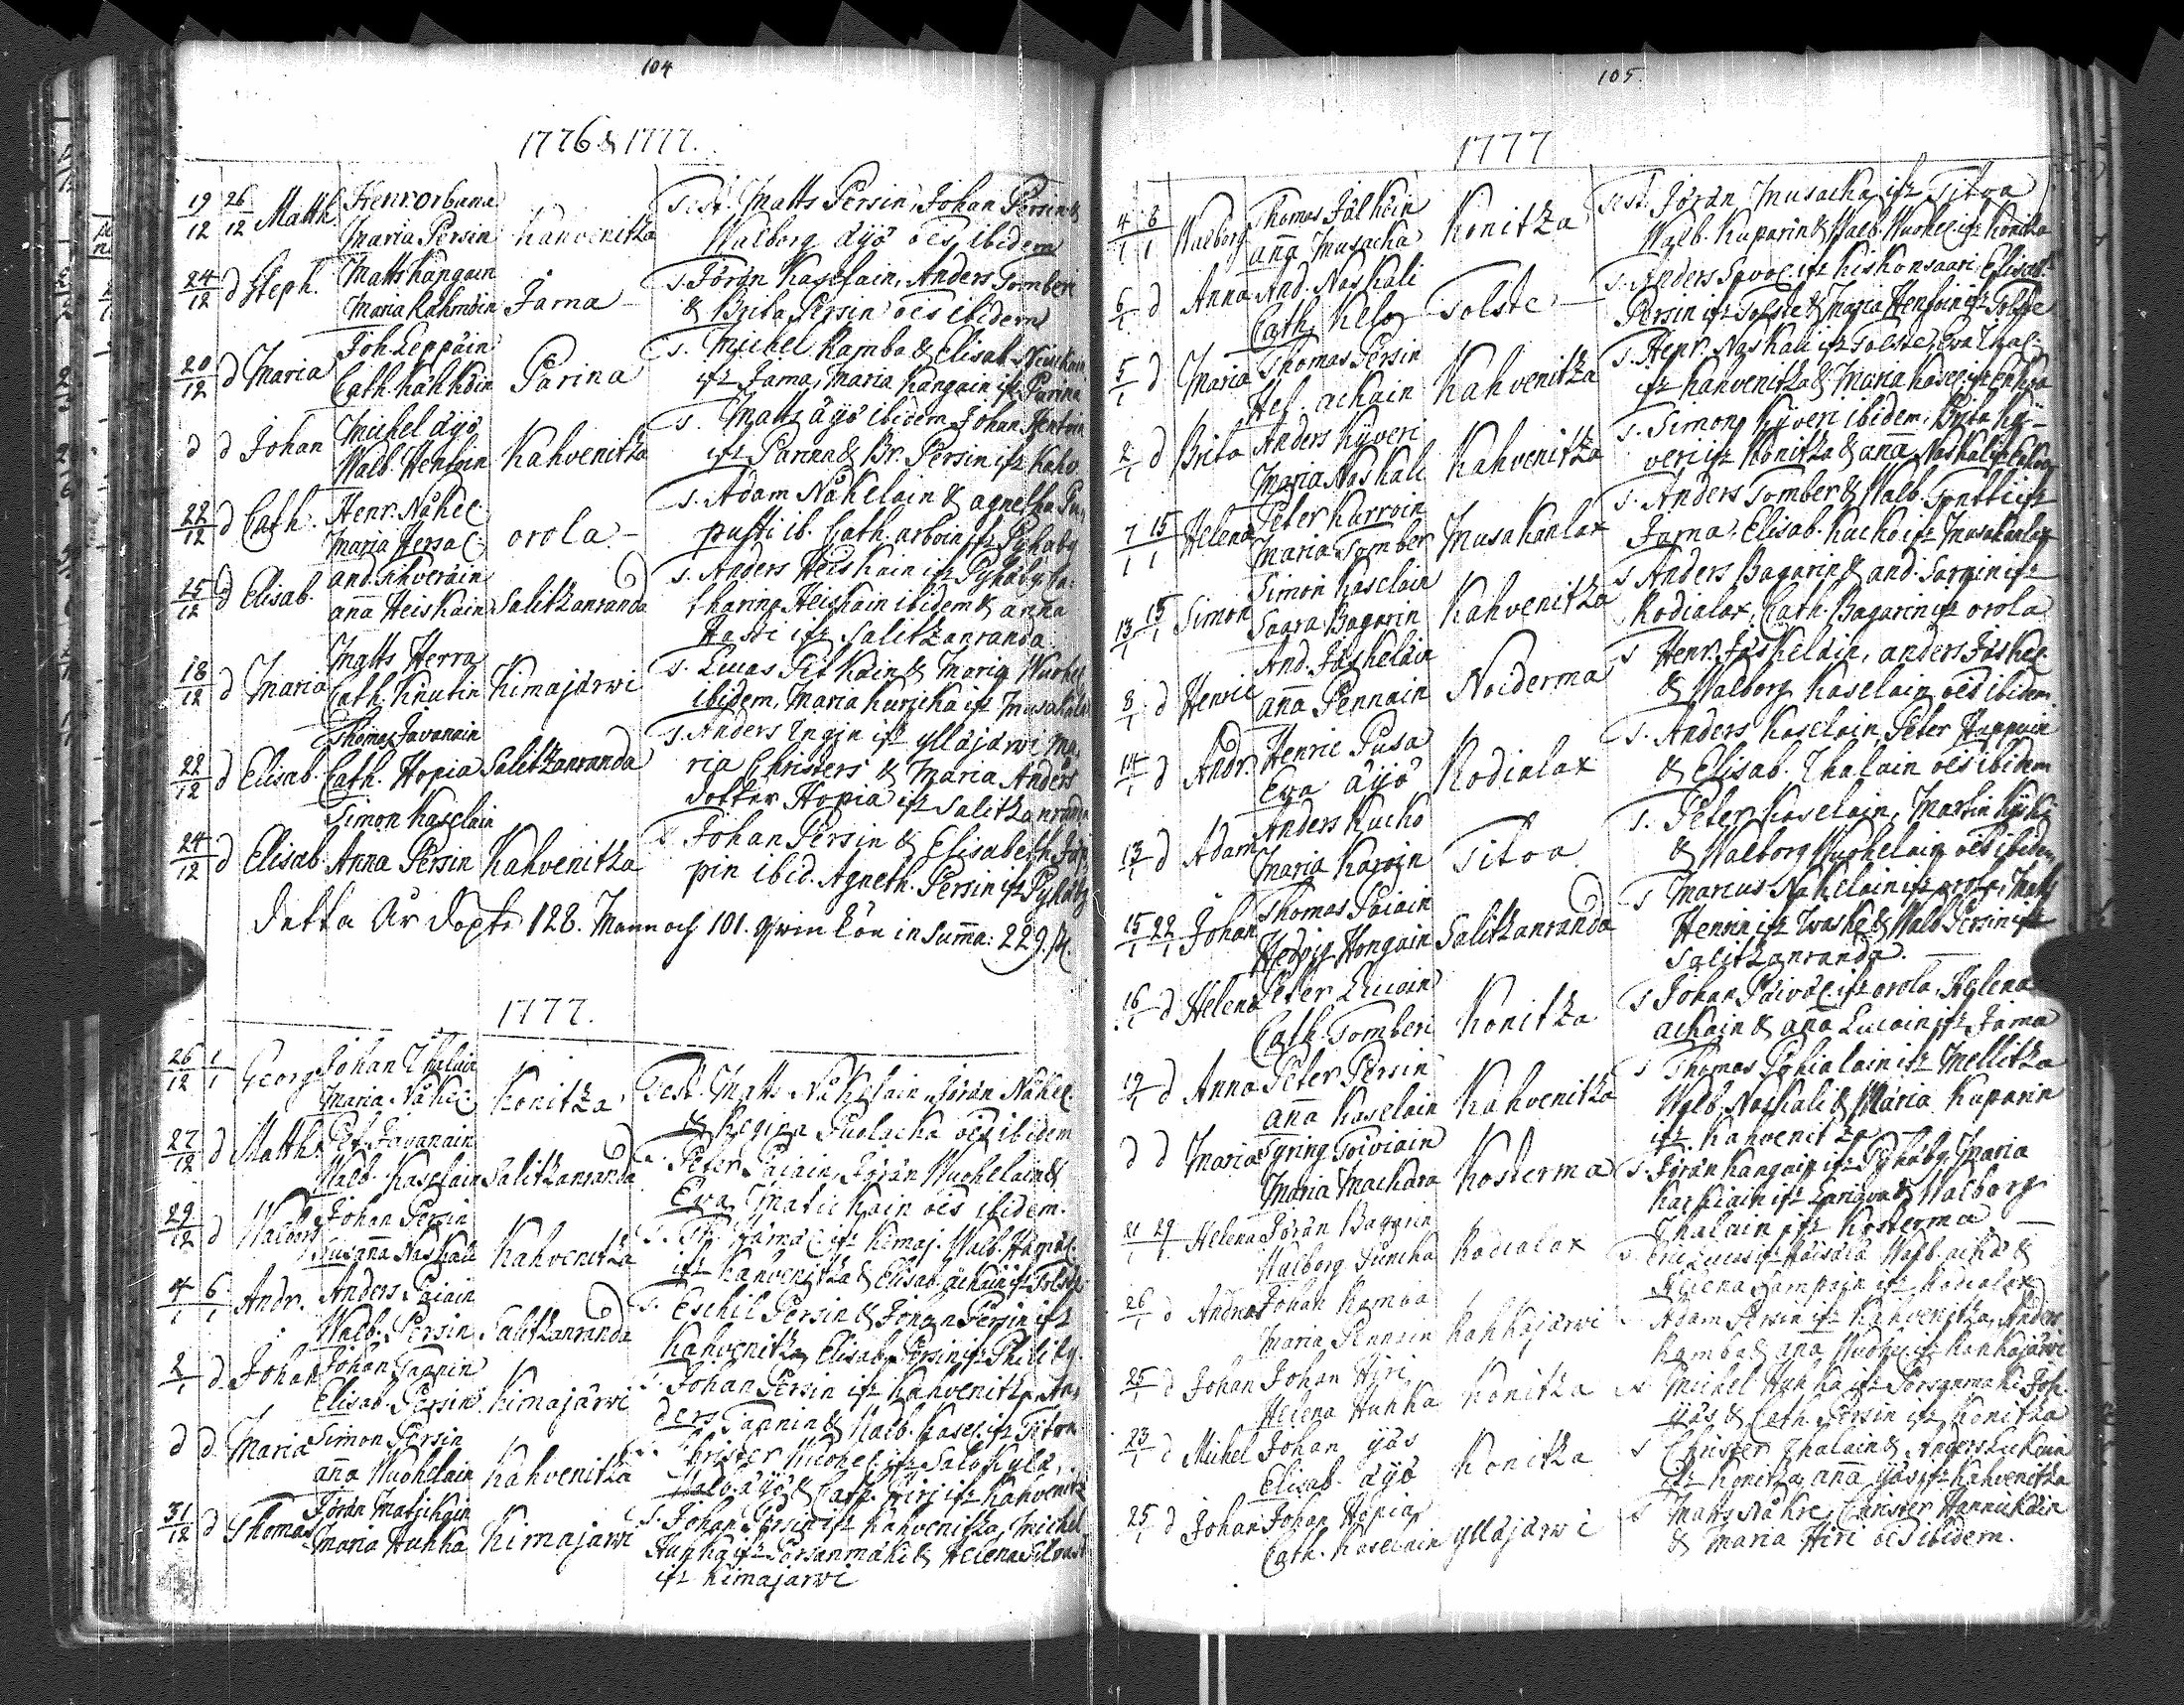 104
1776 & 1777.
19/12 26/12 Matth. Henr. Orbama Maria Persin Kahvenitza T. St. Matts Persin, Johan Persin &
Walborg äyö oës ibidem
24/12 d Steph. Matts Kangain Maria Rahmöin Jama S. Jöran Kaselain, Anders Tomberi
& Brita Persin oës ibidem
20/12 d Maria Joh. Leppäin Cath. Kähköin Parina S. Michel Ramba & Elisab.
ifr. Jama, Maria Kangain ifr. Parina
d d Johan Michel äyö Walb. Hentoin Kahvenitza S. Matts äyö ibidem, Johan Hentoin
ifr. Parina & Br. Persin ifr. Kahv.
22/12 d Cath. Henr. Nåkel. Maria Hersac. orola S. Adam Nåkelain & agnetha Pu-
pusti ib. Cath. arboin ifr. Pyhäby
25/12 d Elisab. and. Sihveräin anna Heiskain Salitzanranda S. Anders Heiskain ifr. Pyhäby, Ca-
tharina Heiskain ibidem & anna
Hassi ifr. Salitzanranda
18/12 d Maria Matts Herra Cath. Knutin Kimajärwi S. Lucas Pitkäin & Maria Wuohel.
ibidem, Maria Kuricka ifr.
22/12 d Elisab. Thomas Javanain Cath. Hopia Salitzanranda S. Anders Ingin ifr. ylläjärwi Ma-
ria Christers & Maria Anders
dotter Hopia ifr. Salitzanranda
24/12 d Elisab. Simon Kaselain Anna Persin Kahvenitza S. Johan Persin & Elisabeth
pin ibid. Agneth. Persin ifr. Pyhäby
Detta År döpte 128. Mann och 101. qwin Kön in Summa: 229. St.
1777.
26/12 1/1 Georg Johan Ihalain Maria Nåkel. Konitza Test. Matts Nåkelain Jöran Nåkel.
& Regina Puolacka oës ibidem
27/12 d Matth. Pet. Javanain Walb. Kaselain Salitzanranda S. Peter Paiain, Jöran Wuohelain &
Eva Matickain oës ibidem.
29/12 d Walborg Johan Persin Susanna Naskali Kahvenitza S. Hämäl. ifr. Kimaj. Walb. Hämäl.
ifr. Kahvenitza & Elisab. äckäin ifr. Tolste
4/1 6/1 Andr. Anders Paiain Walb. Persin Salitzanranda S. Eschil Persin & Johan Persin ifr.
Kahvenitza, Elisab. Persin ifr.
2/1 d Johan Johan Tapnin Elisab. Persin Kimajärwi S. Johan Persin ifr. Kahvenitza, An-
ders Tapnin & Walb. Kasel. ifr. Titoa
d d Maria Simon Persin anna Wuohelain Kahvenitza S. Christer Wuohel. ifr. Salokylä,
Walb. äyö & Cath. Hiri ifr. Kahvenitz.
31/12 d Thomas Jöran Matickain Maria Hukka Kimajärwi S. Johan Persin ifr. Kahvenitza, Michel
Hukka ifr. Porsanmäki & Helena
ifr. Kimajärwi
105.
1777
4/1 6/1 Walborg Thomas Jälköin anna Musacka Konitza Test. Jöran Musacka ifr. Titoa
Walb. Kuparin & Walb. Wuohel. ifr. Konitza
6/1 d Anna And. Naskali Cath. Tolste S. Anders Savol. ifr. Kiskonsaari, Elisab.
Persin ifr. Tolste & Maria Hentoin ifr. Tolste
5/1 d Maria Thomas Persin Hel. ackain Kahvenitza S. Henr. Naskali ifr. Tolste, Eva Ihal.
ifr. Kahvenitza & Maria Kasel. ifr.
2/1 d Brita Anders Kyveri Maria Naskali Kahvenitza S. Simon Kyveri ibidem, Brita Ky-
veri ifr. Konitza & anna Naskali
7/1 15/1 Helena Peter Kurroin Maria Tomber Musakanlax S. Anders Tomber & Walb. Tontti ifr.
Jama, Elisab. Kucko ifr. Musakanlax
13/1 15/1 Simon Simon Kaselain Saara Bagarin Kahvenitza S. Anders Bagarin & and. Sarpin ifr.
Rodialax, Cath. Bagarin ifr. orola
8/1 d Henric And. Jäskeläin anna Pennain Noiderma S. Henr. Jäskeläin, anders Jäskel.
& Walborg Kaselain oës ibidem
14/1 d Andr. Henric Pusa Eva äyö Rodialax S. Anders Kaselain, Peter Happoin
& Elisab. Ihalain oës ibidem
13/1 d Adam Anders Kucko Maria Karoin Titoa S. Peter Kaselain, Martin
& Walborg Wuohelain oës ibidem
15/1 22/1 Johan Thomas Paiain Hedvig Hongain Salitzanranda S. Marcus Nåkelain ifr. orola, Matts
Hennin ifr. & Walb. Persin ifr.
Salitzanranda.
16/1 d Helena Peter Lucain Cath. Tomberi Konitza S. Johan Päiväl. ifr. orola, Helena
ackain & ana Lucain ifr. Jama
19/1 d Anna Peter Persin anna Kaselain Kahvenitza S. Thomas Pohialain ifr. Mellitza
Walb. Naskali & Maria Kuparin
ifr. Kahvenitza
d d Maria Gring Toiviain Maria Mackara Kosterma S. Jöran Kangain ifr. Pyhäby, Maria
ifr. & Walborg
Ihalain ifr. Kosterma
21/1 29/1 Helena Jöran Bagarin Walborg Juncka Rodialax S. Eric Lucas ifr. Räisälä Walb. &
Helena Lampain ifr. Rodialax
26/1 d Andreas Johan Ramba Maria Pennoin Kahkajärwi S. Adam Persin ifr. Kahvenitza, Anders
Ramba & ana Wuohel. ifr. Kahkajärwi
25/1 d Johan Johan Hiri Helena Hukka Konitza S. Michel Hukka ifr. Porsanmäki, Joh.
yäs & Cath. Persin ifr. Konitza
23/1 d Michel Johan yäs Elisab. äyö Konitza S. Christer Ihalain & Anders Luckain
ifr. Konitza, anna yäs ifr. Kahvenitza
25/1 d Johan Johan Hopia Cath. Kaselain ylläjärwi S. Matts Nåkre, Christer Hannukain
& Maria Hiri oës ibidem.